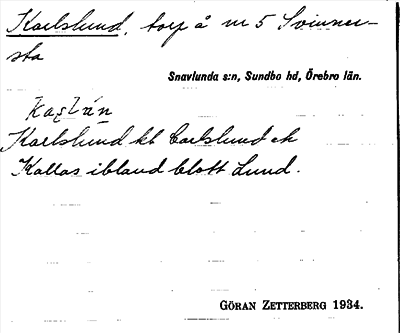 Karlslund, torp å nr 5 Svinner-
sta
Snavlunda s:n, Sundbo hd, Örebro län.
Karlslund kt Carlslund ek
Kallas ibland blott Lund.
GÖRAN ZETTERBERG 1934.